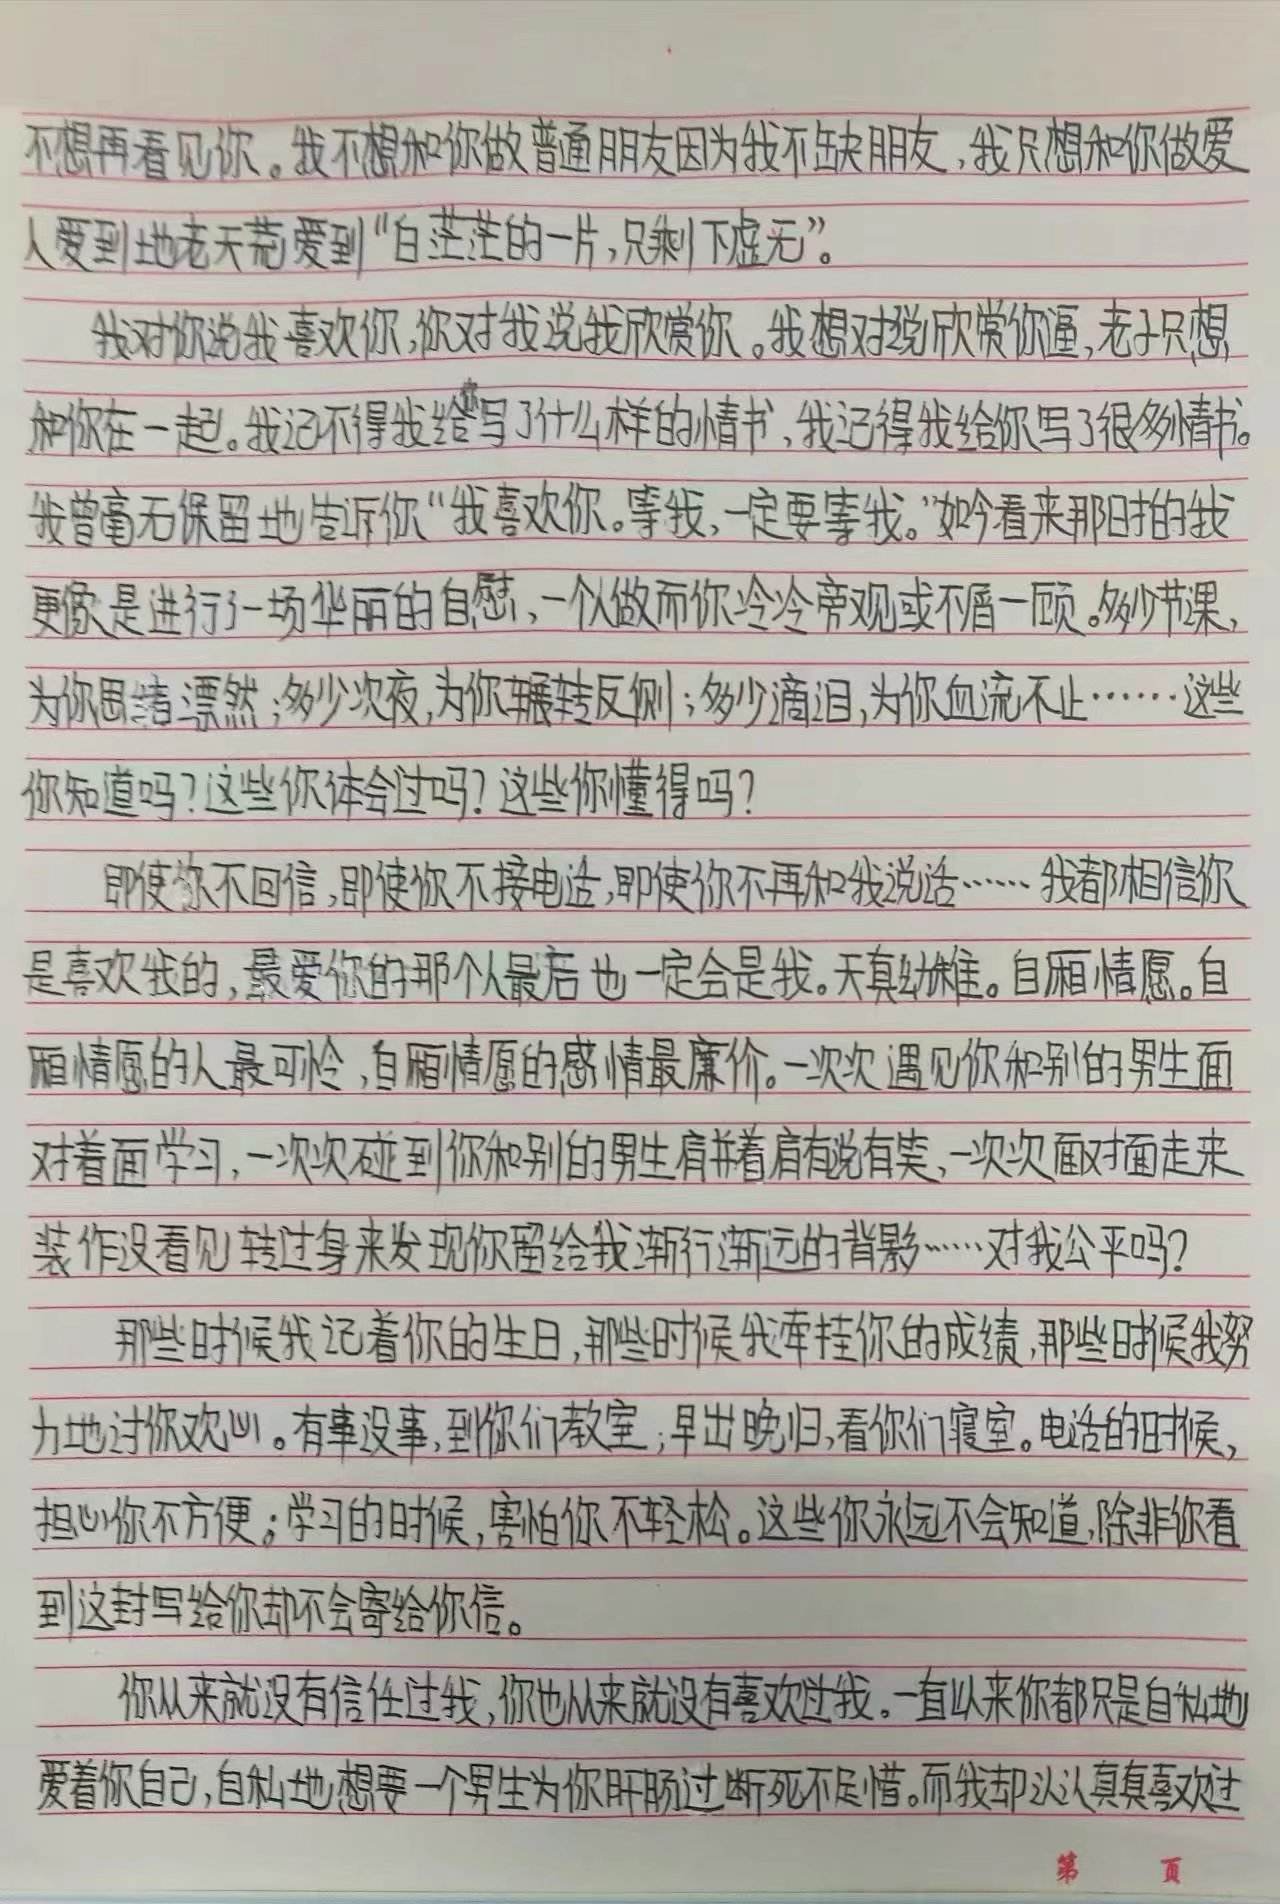 不想再看见你。我不想和你做普通朋友因为我不缺朋友,我只想和你做爱
人爱到地老天荒爱到“白茫茫的一片,只剩下虚无”。
我对你说我喜欢你,你对我说我欣赏你。我想对说欣赏你逼,老子只想
和你在一起。我记不得我给你写了什么样的情书,我记得我给你写了很多情书。
我曾毫无保留地告诉你“我喜欢你。等我,一定要等我。”如今看来那时的我
更像是进行了一场华丽的自慰,一个人做而你冷冷旁观或不屑一顾。多少节课,
为你思绪漂然;多少次夜,为你辗转反侧;多少滴泪,为你血流不止……这些
你知道吗?这些你体会过吗?这些你懂得吗?
即使你不回信,即使你不接电话,即使你不再和我说话……我都相信你
是喜欢我的,最爱你的那个人最后也一定会是我。天真幼稚。自厢情愿。自
厢情愿的人最可怜,自厢情愿的感情最廉价。一次次遇见你和别的男生面
对着面学习,一次次碰到你和别的男生肩并着肩有说有笑,一次次面对面走来
装作没看见转过身来发现你留给我渐行渐远的背影……对我公平吗?
那些时候我记着你的生日,那些时候我牵挂你的成绩,那些时候我努
力地讨你欢心。有事没事,到你们教室;早出晚归,看你们寝室。电话的时候,
担心你不方便;学习的时候,害怕你不轻松。这些你永远不会知道,除非你看
到这封写给你却不会寄给你信。
你从来就没有信任过我,你也从来就没有喜欢过我。一直以来你都只是自私地
爱着你自己,自私地想要一个男生为你肝肠过断死不足惜。而我却认认真真喜欢过
第 页